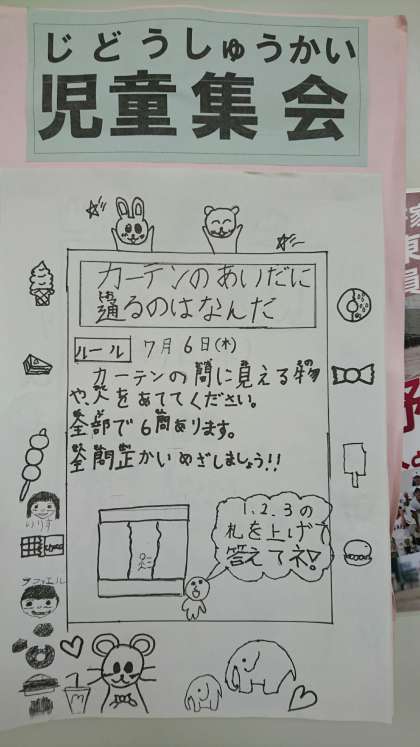 じどうしゅうかい
児童集会
カーテンのあいだに
通るのはなんだ
ルール 7月6日(木)
カーテンの間に見える物
や、人をあててください。
全部で6問あります。
全問正かいめざしましょう!!
1.2.3の
札を上げて
答えてネ!